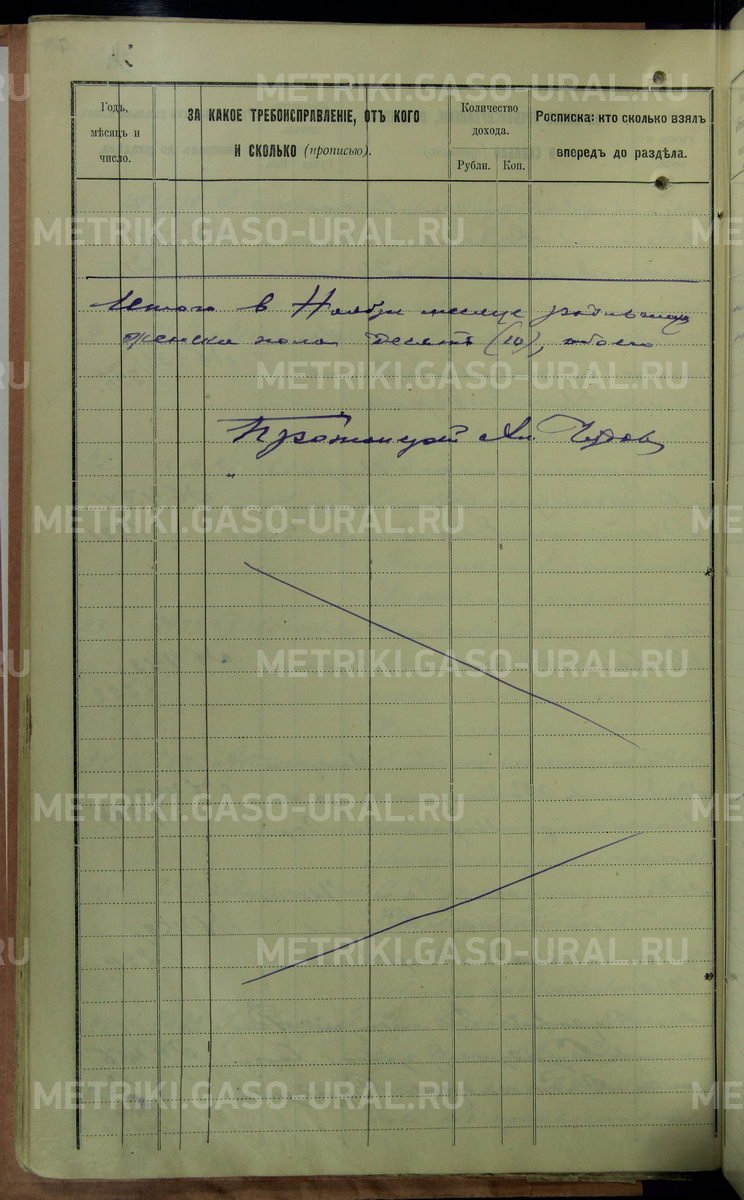 METRIKI.GASO-URAL.RU
Годъ, мѣсяцъ и число.
ЗА КАКОЕ ТРЕБОИСПРАВЛЕНІЕ, ОТЪ КОГО
И СКОЛЬКО (прописью).
Количество дохода.
Рубли. Коп.
Росписка: кто сколько взялъ
впередъ до раздѣла.
Итого в Ноябре месяце родившихся
женска пола десять (10), обоего